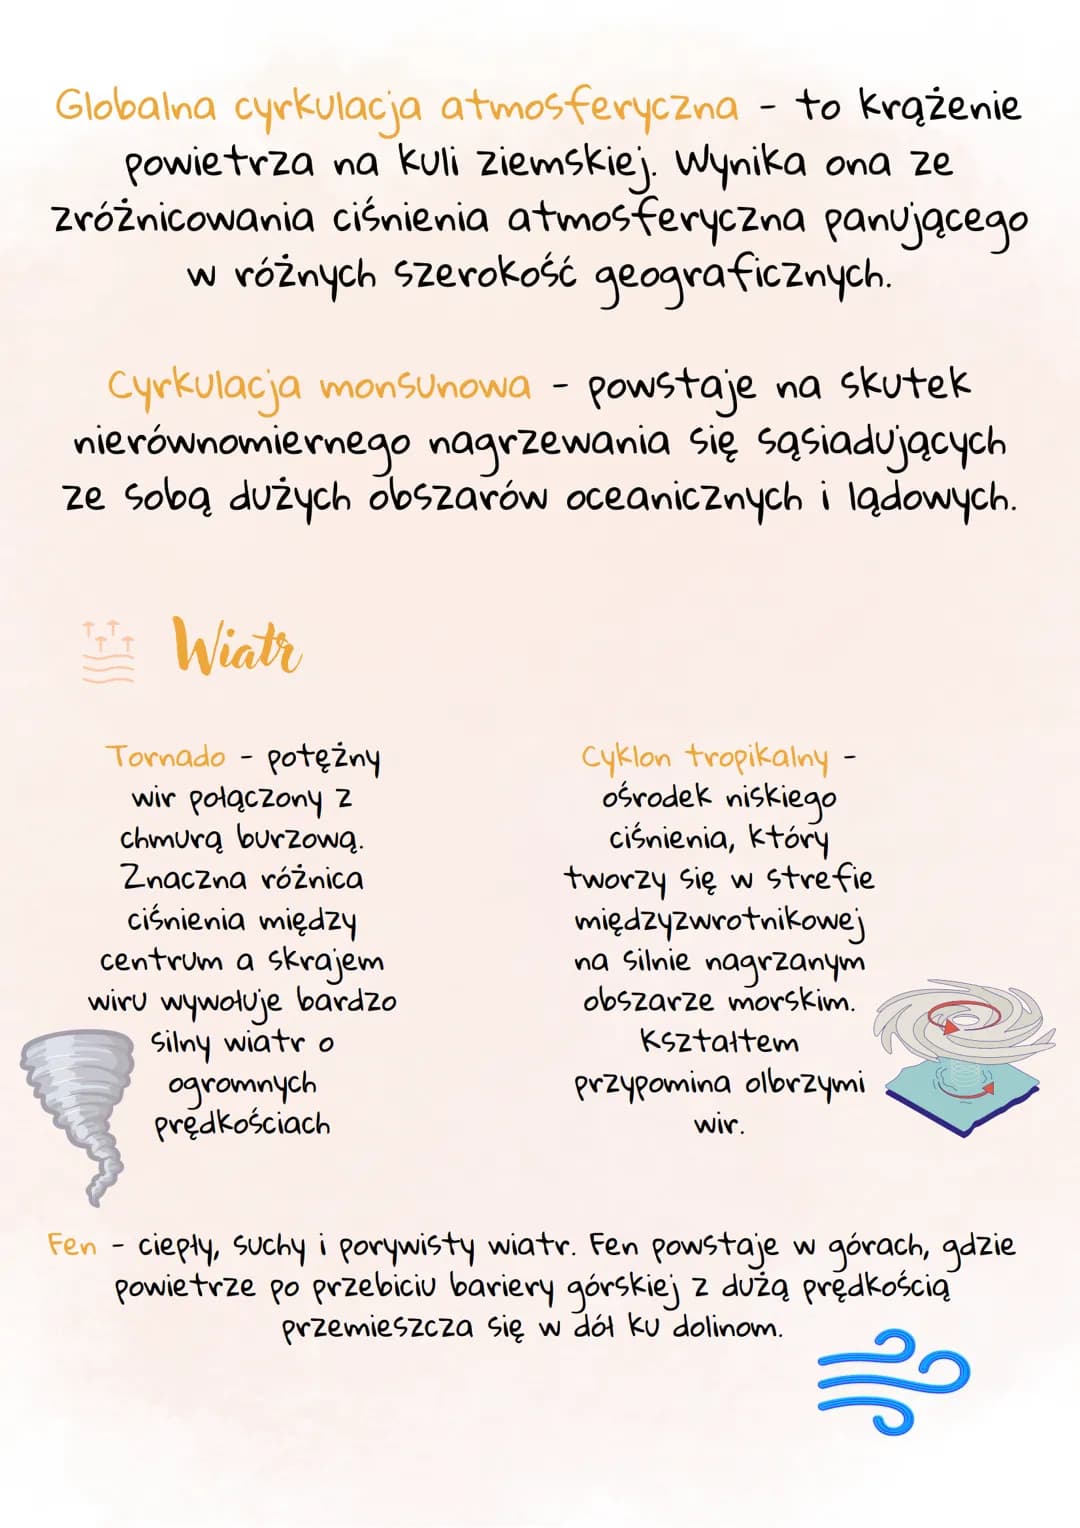 Globalna cyrkulacja atmosferyczna - to krążenie
powietrza na kuli ziemskiej. Wynika ona ze
zróżnicowania ciśnienia atmosferyczna panującego
w różnych szerokość geograficznych.
Cyrkulacja monsunowa - powstaje na skutek
nierównomiernego nagrzewania się sąsiadujących
ze sobą dużych obszarów oceanicznych i lądowych.
Wiatr
Tornado - potężny
wir połączony z
chmurą burzową.
Znaczna różnica
ciśnienia między
centrum a skrajem
wiru wywołuje bardzo
silny wiatr o
ogromnych
prędkościach
Cyklon tropikalny -
ośrodek niskiego
ciśnienia, który
tworzy się w strefie
międzyzwrotnikowej
na silnie nagrzanym
obszarze morskim.
Kształtem
przypomina olbrzymi
wir.
Fen - ciepły, suchy i porywisty wiatr. Fen powstaje w górach, gdzie
powietrze po przebiciu bariery górskiej z dużą prędkością
przemieszcza się w dół ku dolinom.